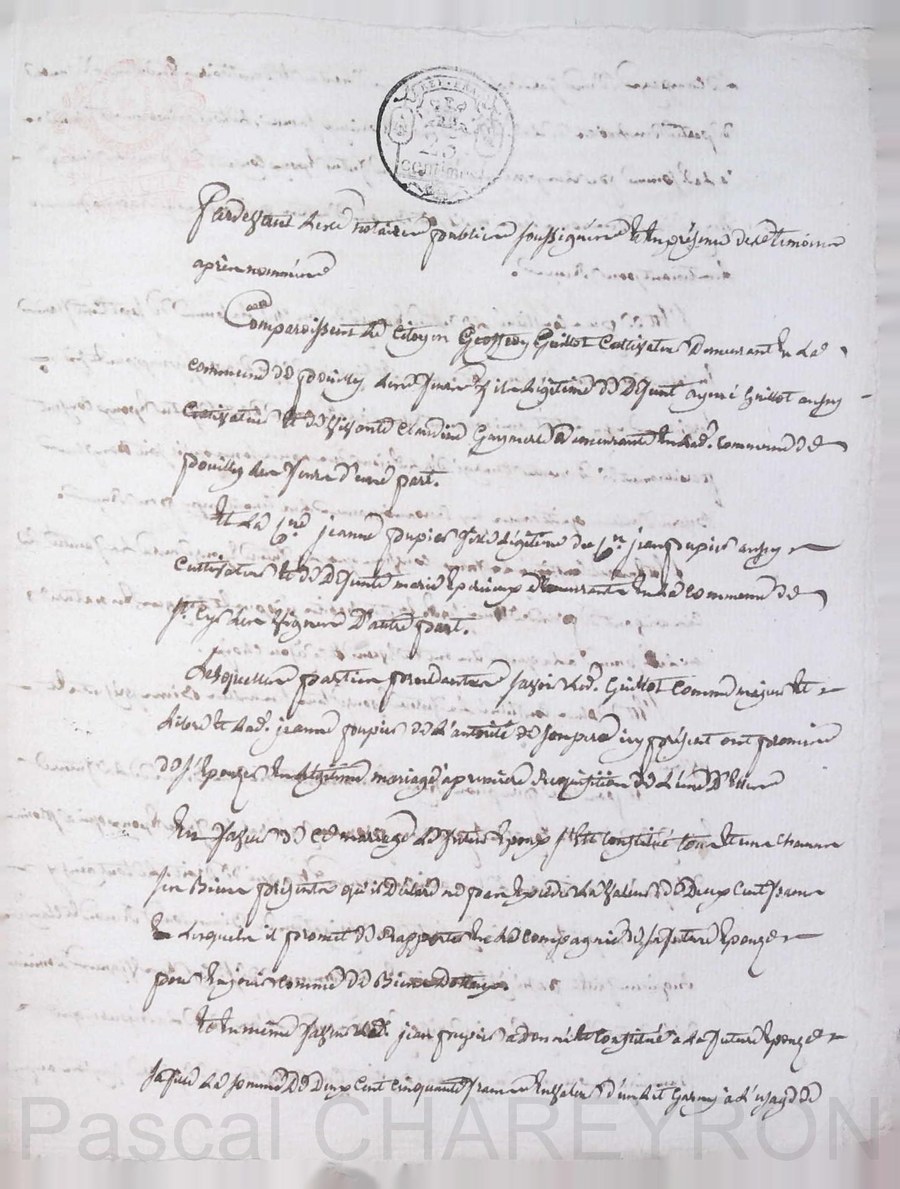 25
centimes
Pardevant les notaires publics soussignés et en présence des témoins
après nommés
Comparoissent le Citoyen Geoffroy Guillot Cultivateur Demeurant en la
commune de pouilly fils légitime de Defunt Guillot aussy
Cultivateur et de vivante Claudine Demeurante en lad. commune de
pouilly d'une part.
Et la Cne jeanne fils légitime du Cn jean aussy
Cultivateur et de Defunte marie Demeurante en la Commune de
St Cyr les Vignes D'autre part.
Lesquelles parties procedantes savoir led. Guillot Comme majeur et
libre et lad. jeanne de l'autorité de son pere icy présent ont promis
de s'Epouzer en légitime mariage a premiere requisition de l'une D'elles
En faveur de ce mariage le futur Epoux s'est Constitué tous et uns chacuns
ses Biens présents qu'il déclare ne pas exceder la valeur de Deux Cent francs
Lesquels il promet de rapporter en la compagnie de sa future Epouze
pour en jouir comme de Biens Dotaux
Et en meme faveur led. jean a donné et Constitué a la future Epouze
sa fille la somme de Deux Cent Cinquante francs en valeur d'un lit Garny a l'usage de
Pascal CHAREYRON